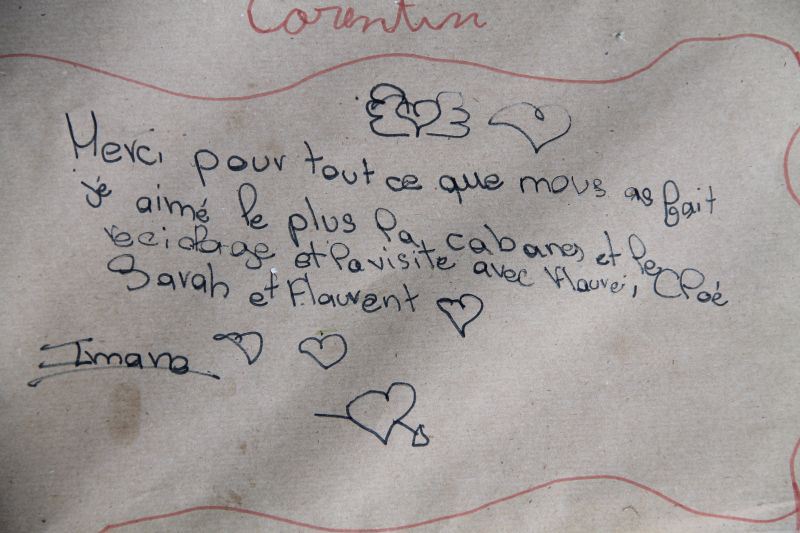 Corentin
Merci pour tout ce que mous as fait
je aimé le plus la cabanes et le
reciclage et la visite avec Maurei, Chloé
Sarah et Flaurent
Imana